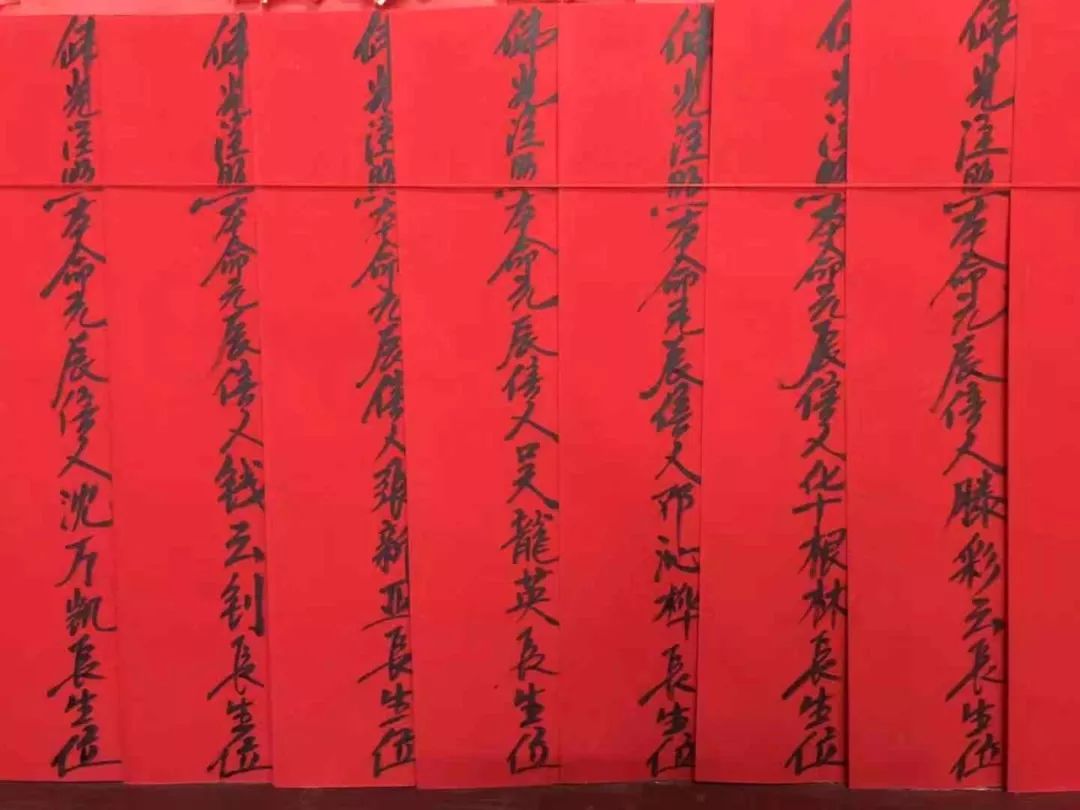 佛光注照本命元辰信人滕彩云長生位
佛光注照本命元辰信人华根林長生位
佛光注照本命元辰信人邓沁桦長生位
佛光注照本命元辰信人吴龍英長生位
佛光注照本命元辰信人張新亚長生位
佛光注照本命元辰信人钱云钊長生位
佛光注照本命元辰信人沈万凯長生位